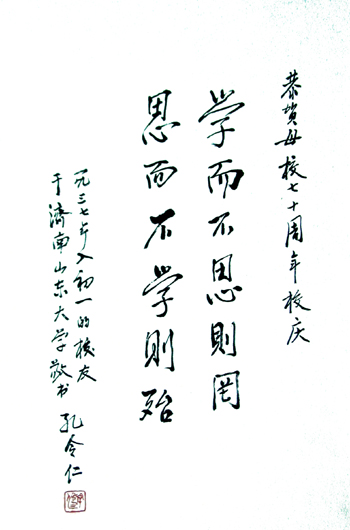 恭贺母校七十周年校庆
学而不思則罔
思而不学則殆
一九三七年入初一的校友
于濟南山东大学敬书
孔令仁